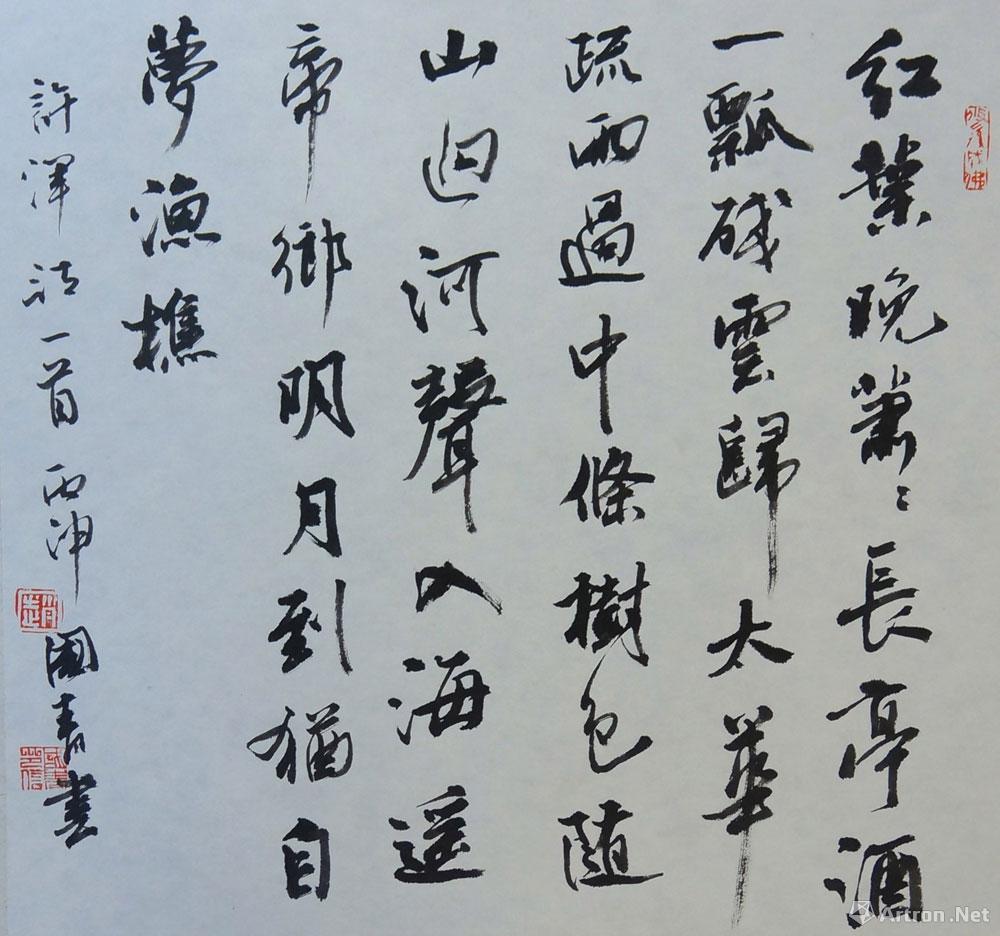 紅葉晚蕭〻長亭酒
一瓢残雲歸太華
疏雨過中條樹色随
山迥河聲入海遥
帝鄉明月到猶自
夢漁樵
許渾詩一首 丙申 國青書
Artron.Net